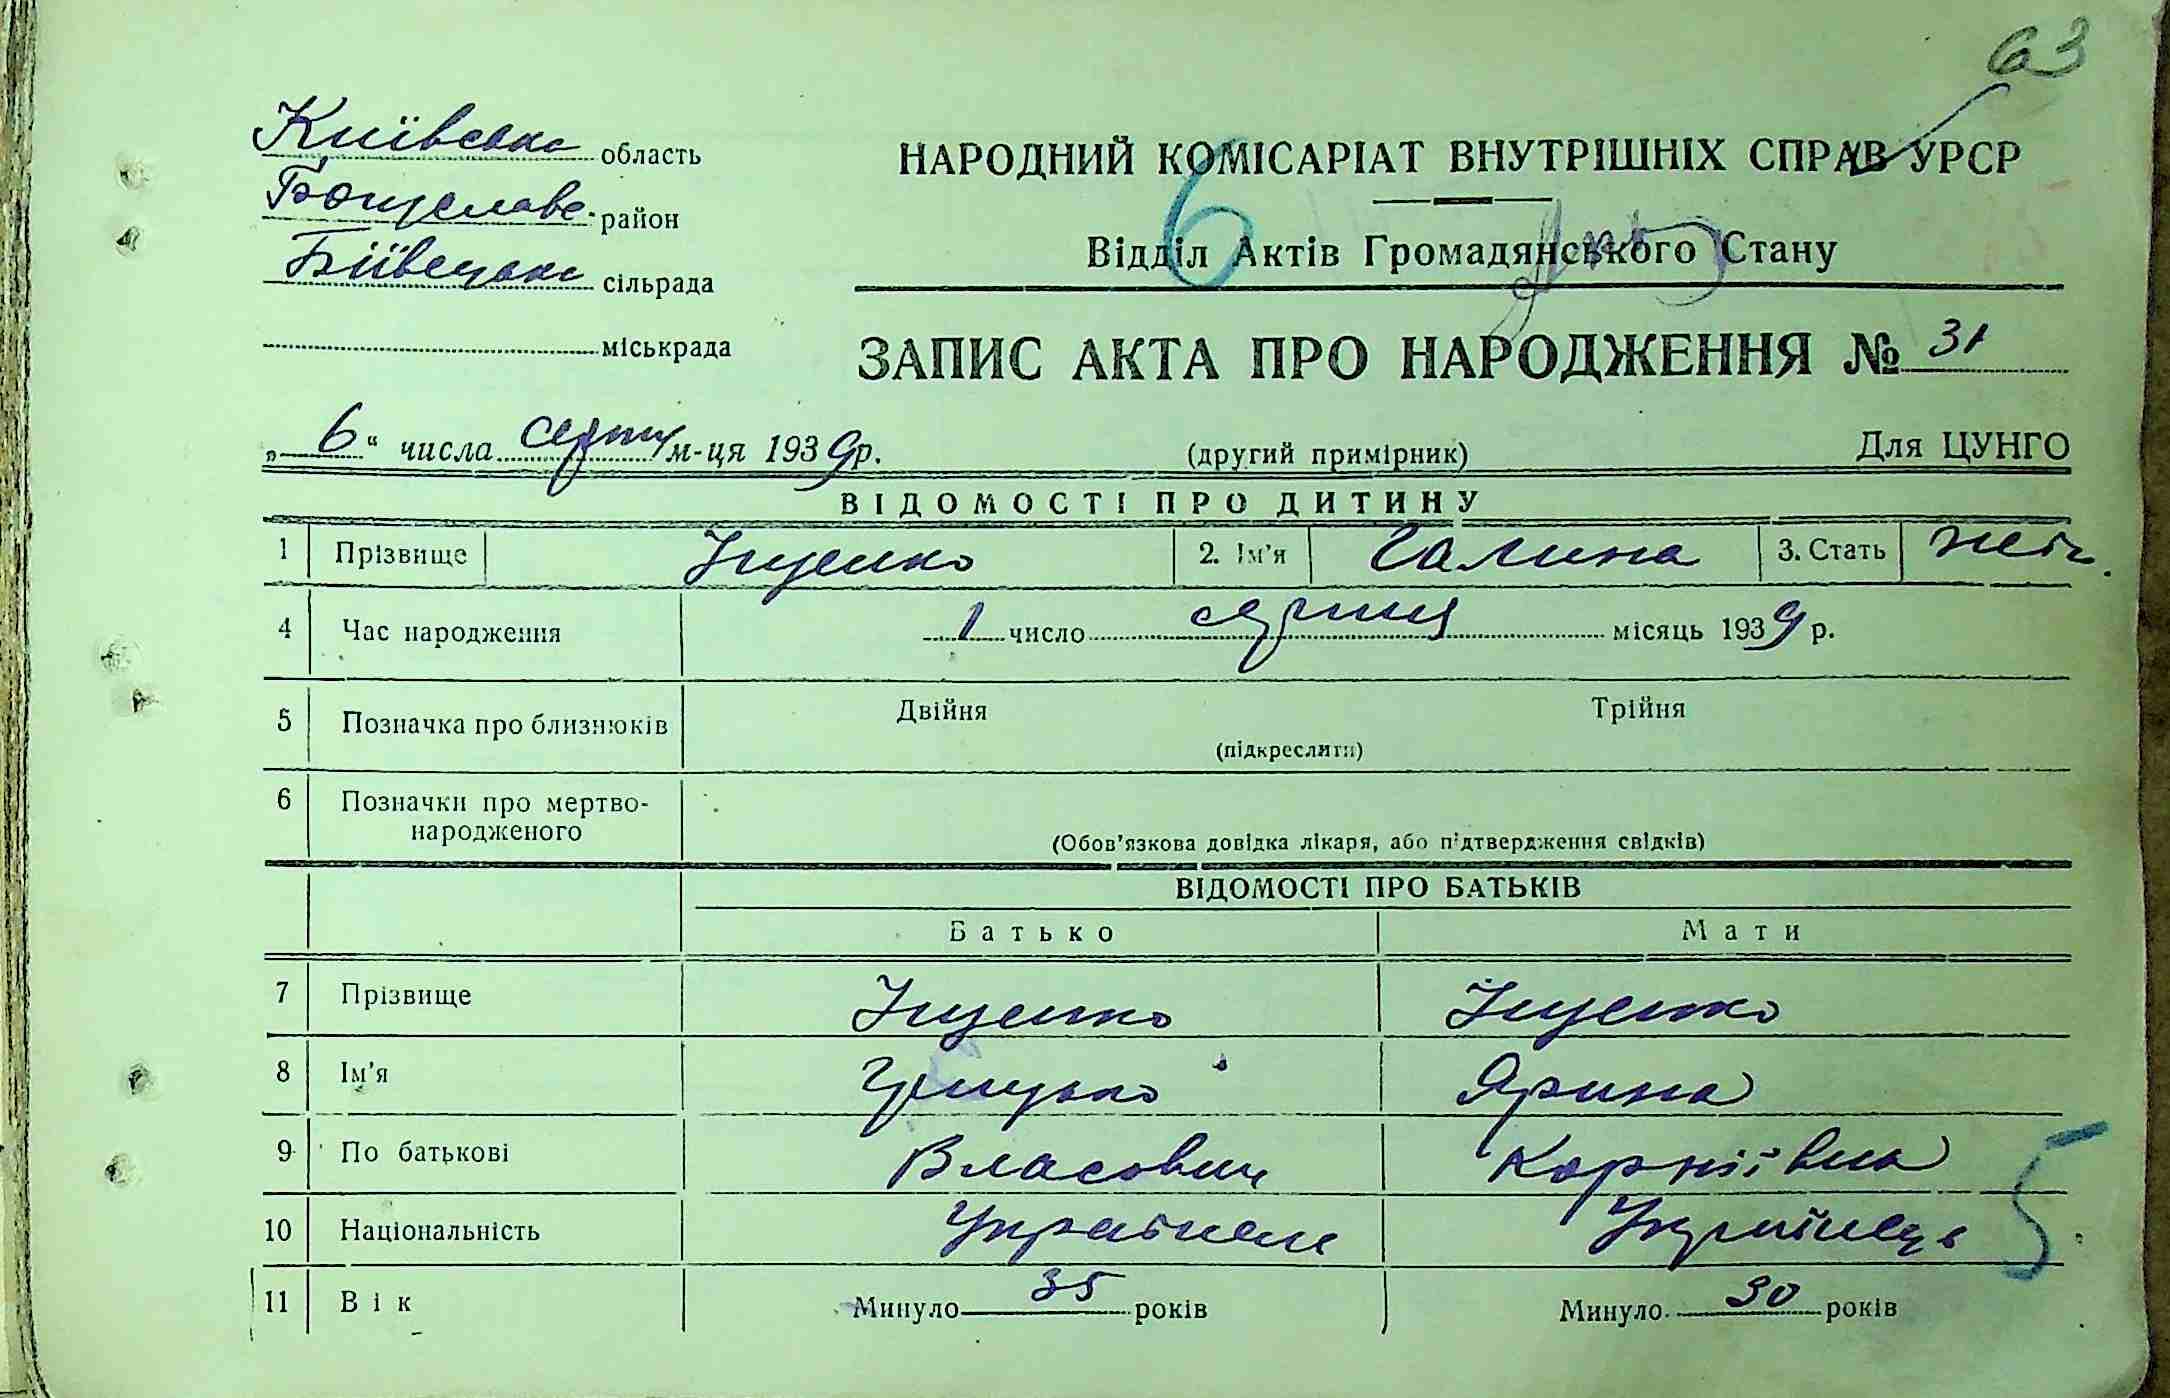 63
Київська область
Богуславс. район
Бїївецька сільрада
міськрада
НАРОДНИЙ КОМІСАРІАТ ВНУТРІШНІХ СПРАВ УРСР
6
Відділ Актів Громадянського Стану
ЗАПИС АКТА ПРО НАРОДЖЕННЯ № 31
„ 6 “ числа серпня м-ця 1939 р. (другий примірник) Для ЦУНГО
ВІДОМОСТІ ПРО ДИТИНУ
1 Прізвище Іщенко 2. Ім'я Галина 3. Стать жін.
4 Час народження 1 число серпня місяць 1939 р.
5 Позначка про близнюків Двійня Трійня
(підкреслити)
6 Позначки про мертво-
народженого
(Обов'язкова довідка лікаря, або підтвердження свідків)
ВІДОМОСТІ ПРО БАТЬКІВ
Батько Мати
7 Прізвище Іщенко Іщенко
8 Ім'я Грицько Ярина
9 По батькові Власович Корніївна
10 Національність Українець Українець
5
11 Вік Минуло 35 років Минуло 30 років